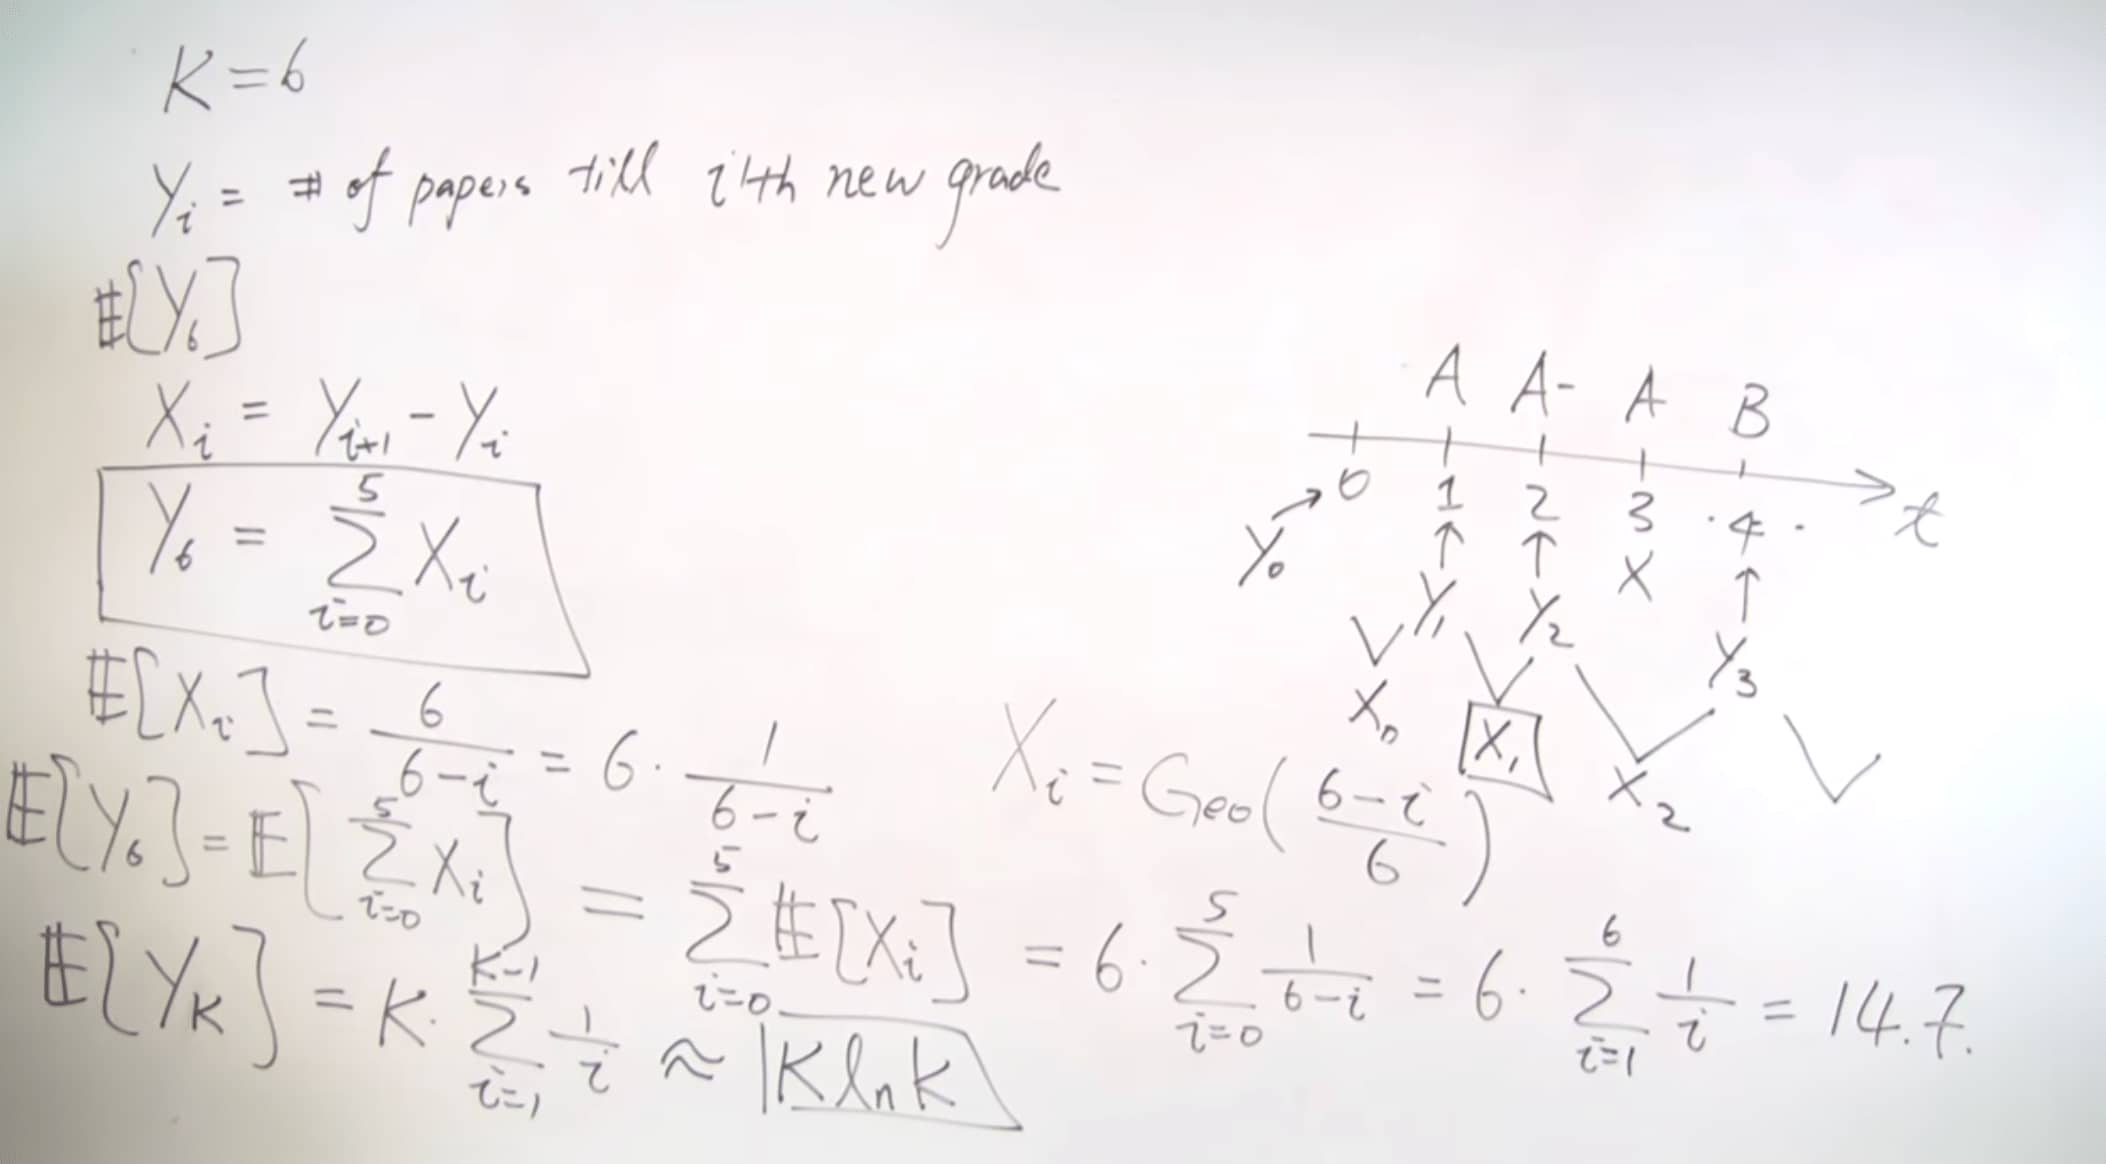 K = 6
Y_i = # of papers till i'th new grade
E[Y_6]
X_i = Y_{i+1} - Y_i
Y_6 = \sum_{i=0}^{5} X_i
E[X_i] = \frac{6}{6-i} = 6 \cdot \frac{1}{6-i}
E[Y_6] = E[\sum_{i=0}^{5} X_i] = \sum_{i=0}^{5} E[X_i] = 6 \cdot \sum_{i=0}^{5} \frac{1}{6-i} = 6 \cdot \sum_{i=1}^{6} \frac{1}{i} = 14.7.
E[Y_K] = K \cdot \sum_{i=1}^{K-1} \frac{1}{i} ≈ K ln K
A A- A B
0 1 2 3 · 4 · t
Y_0 ↑ ↑ X ↑
Y_1 Y_2 Y_3
X_0 X_1 X_2
X_i = Geo(\frac{6-i}{6})